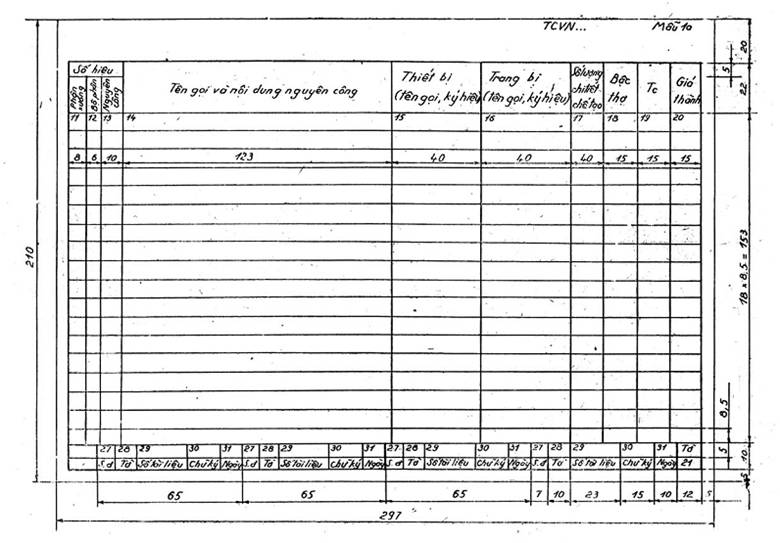 TCVN... Mẫu 1a
20
5
Số hiệu
Phân xưởng Bộ phận Nguyên công Tên gọi và nội dung nguyên công Thiết bị (tên gọi, ký hiệu) Trang bị (tên gọi, ký hiệu) Số lượng chi tiết chế tạo Bậc thợ Tc Giá thành
22
11 12 13 14 15 16 17 18 19 20
8 6 10 123 40 40 40 15 15 15
210
18 x 8,5 = 153
8,5
27 28 29 30 31 27 28 29 30 31 27 28 29 30 31 27 28 29 30 31 Tờ
S.đ Tờ Số tài liệu Chữ ký Ngày S.đ Tờ Số tài liệu Chữ ký Ngày S.đ Tờ Số tài liệu Chữ ký Ngày S.đ Tờ Số tài liệu Chữ ký Ngày 21
5 10
5
65 65 65 7 10 23 15 10 12 5
297